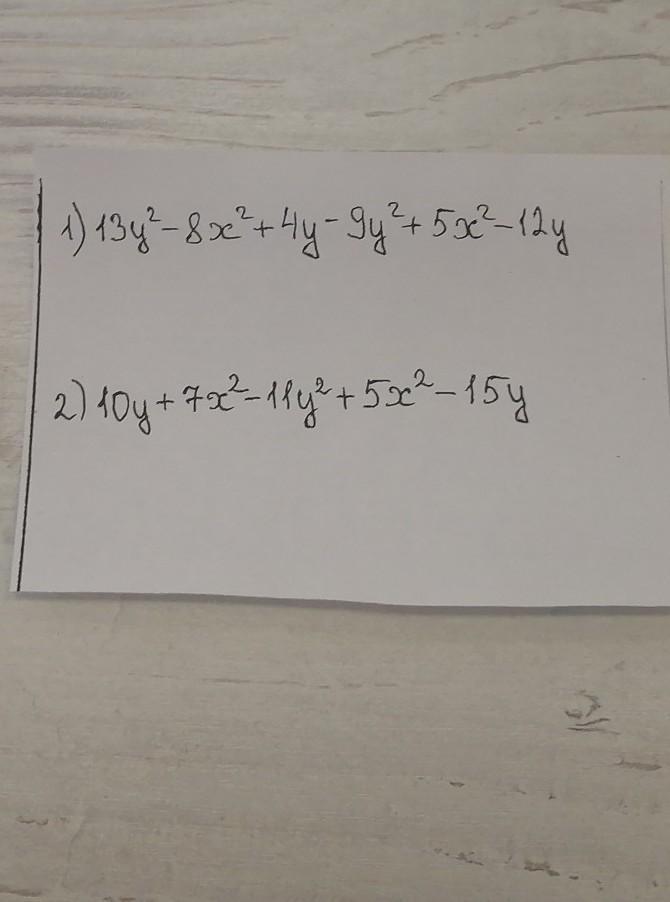 1) 13y² - 8x² + 4y - 9y² + 5x² - 12y
2) 10y + 7x² - 11y² + 5x² - 15y